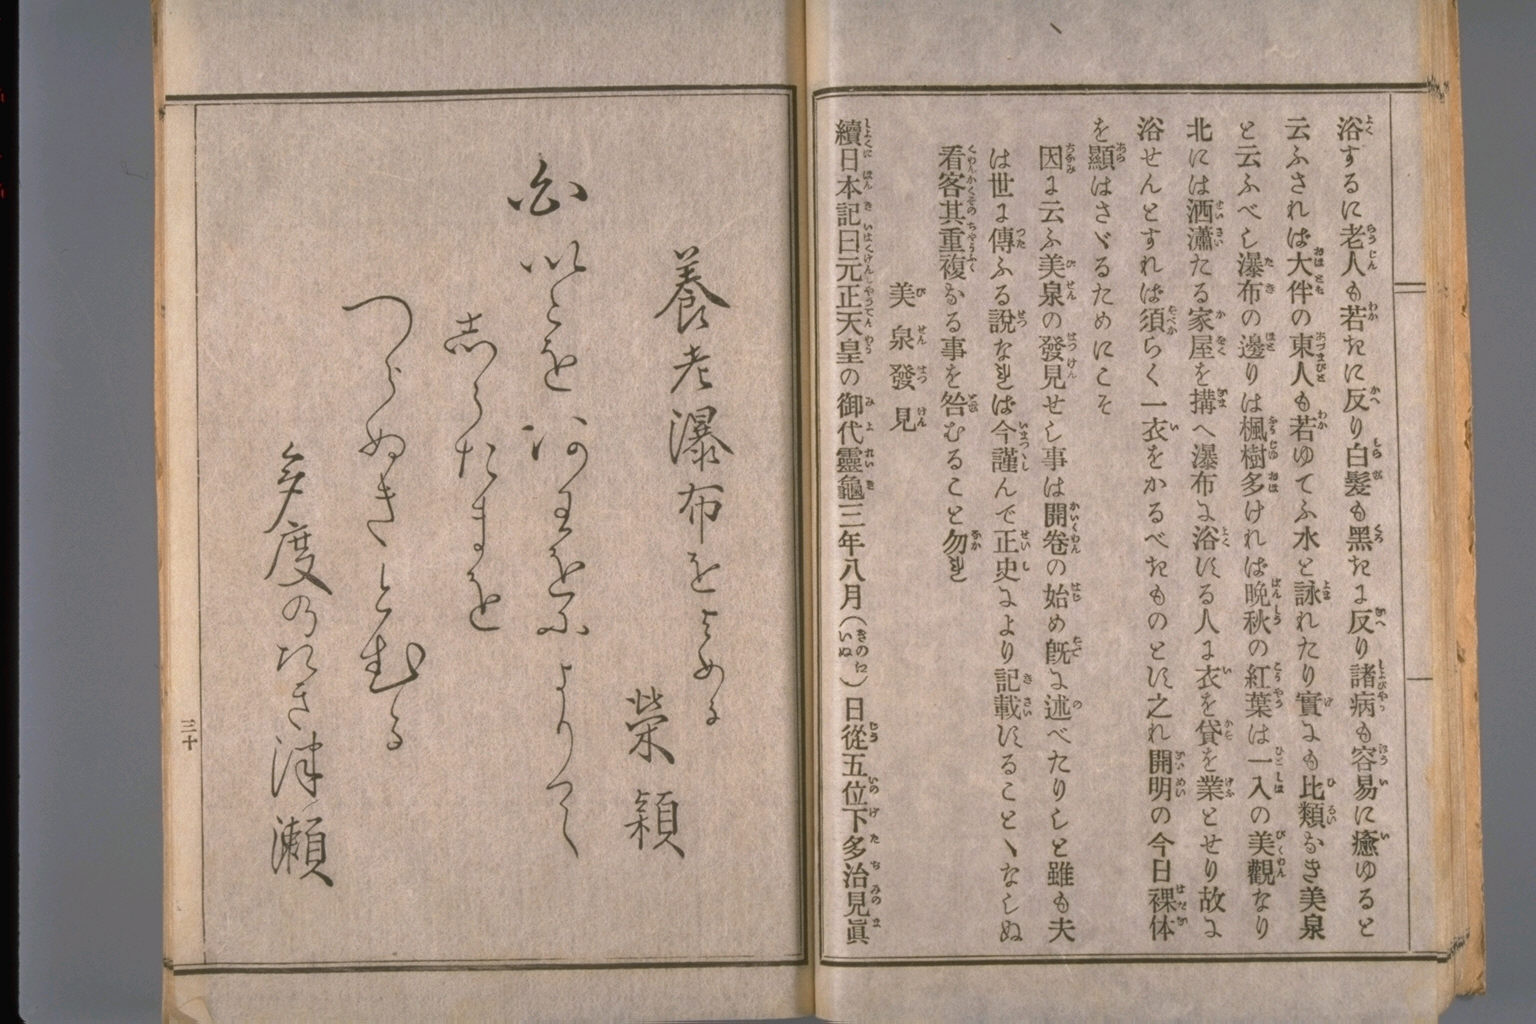 浴するに老人も若きに反り白髮も黑きに反り諸病も容易に癒ゆると
云ふされば大伴の東人も若ゆてふ水と詠れたり實にも比類なき美泉
と云ふべし瀑布の邊りは楓樹多ければ晩秋の紅葉は一入の美觀なり
北には洒瀟たる家屋を搆へ瀑布に浴する人に衣を貸を業とせり故に
浴せんとすれば須らく一衣をかるべきものとす之れ開明の今日裸体
を顯はさゞるためにこそ
因に云ふ美泉の發見せし事は開卷の始め旣に述べたりしと雖も夫
は世に傳ふる說なれば今謹んで正史により記載することゝなしぬ
看客其重複なる事を咎むること勿れ
美泉發見
續日本記曰元正天皇の御代靈龜三年八月(きのにいぬ)日從五位下多治見眞
養老瀑布をよめる
榮頴
以とを
よりつく
志らたまを
つらぬきとむる
多度のたき津瀬
三十